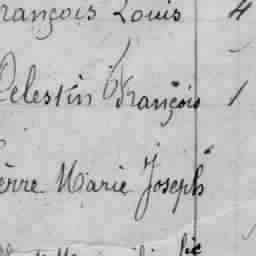 rançois Louis 4
Celestin François 1
ierre Marie Joseph